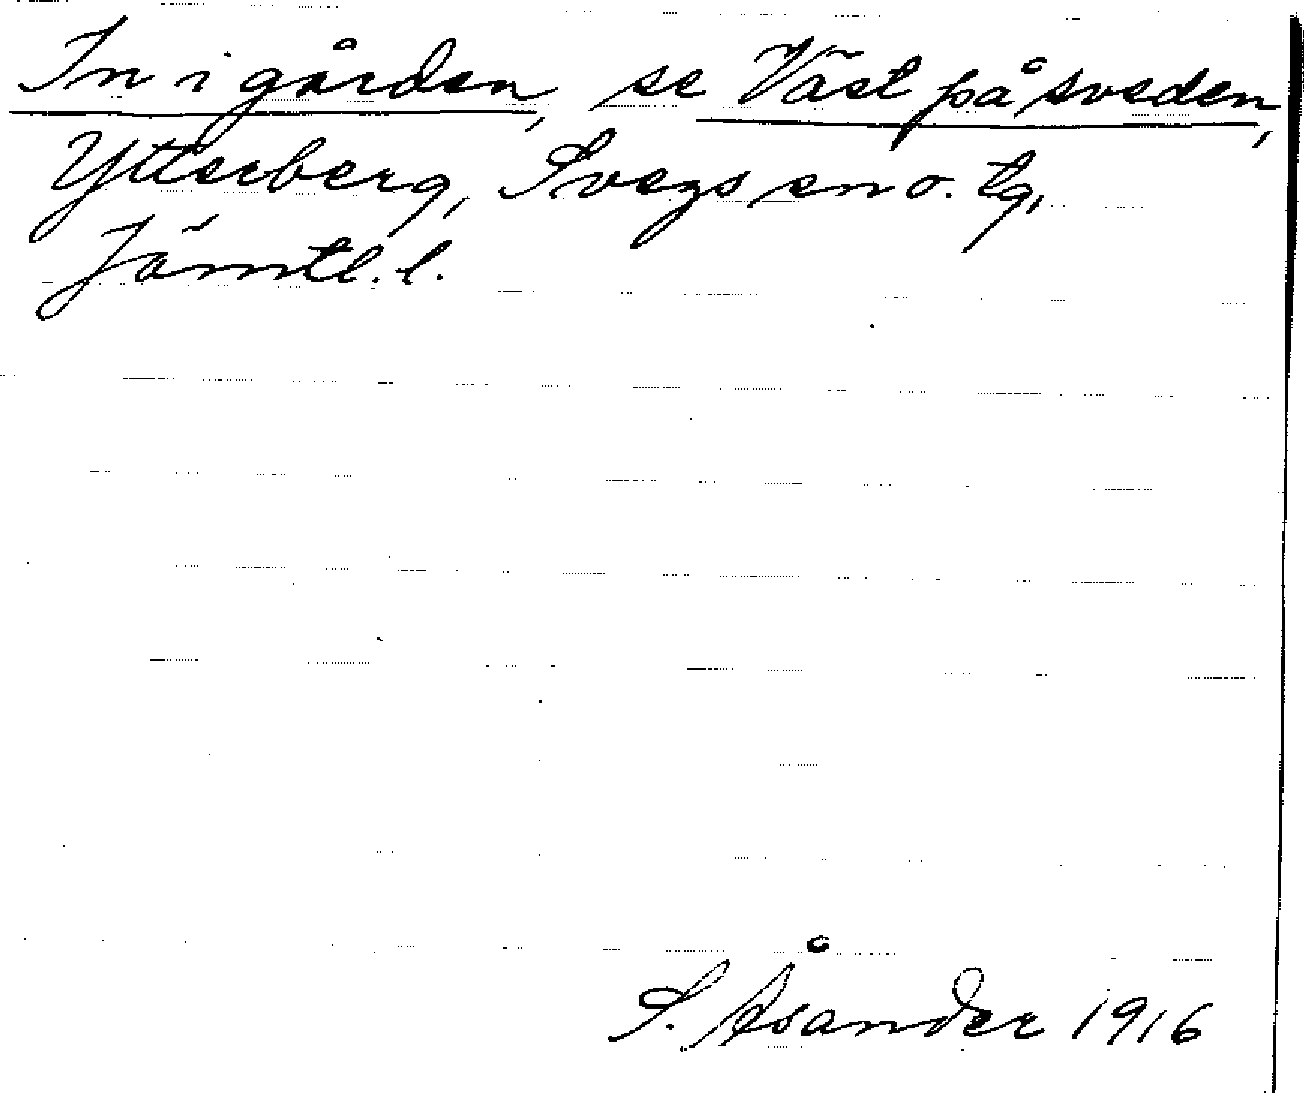 In i gården, se Väst på sveden,
Ytterberg, Svegs sn o. tg,
Jämtl. l.
S. Åsander 1916